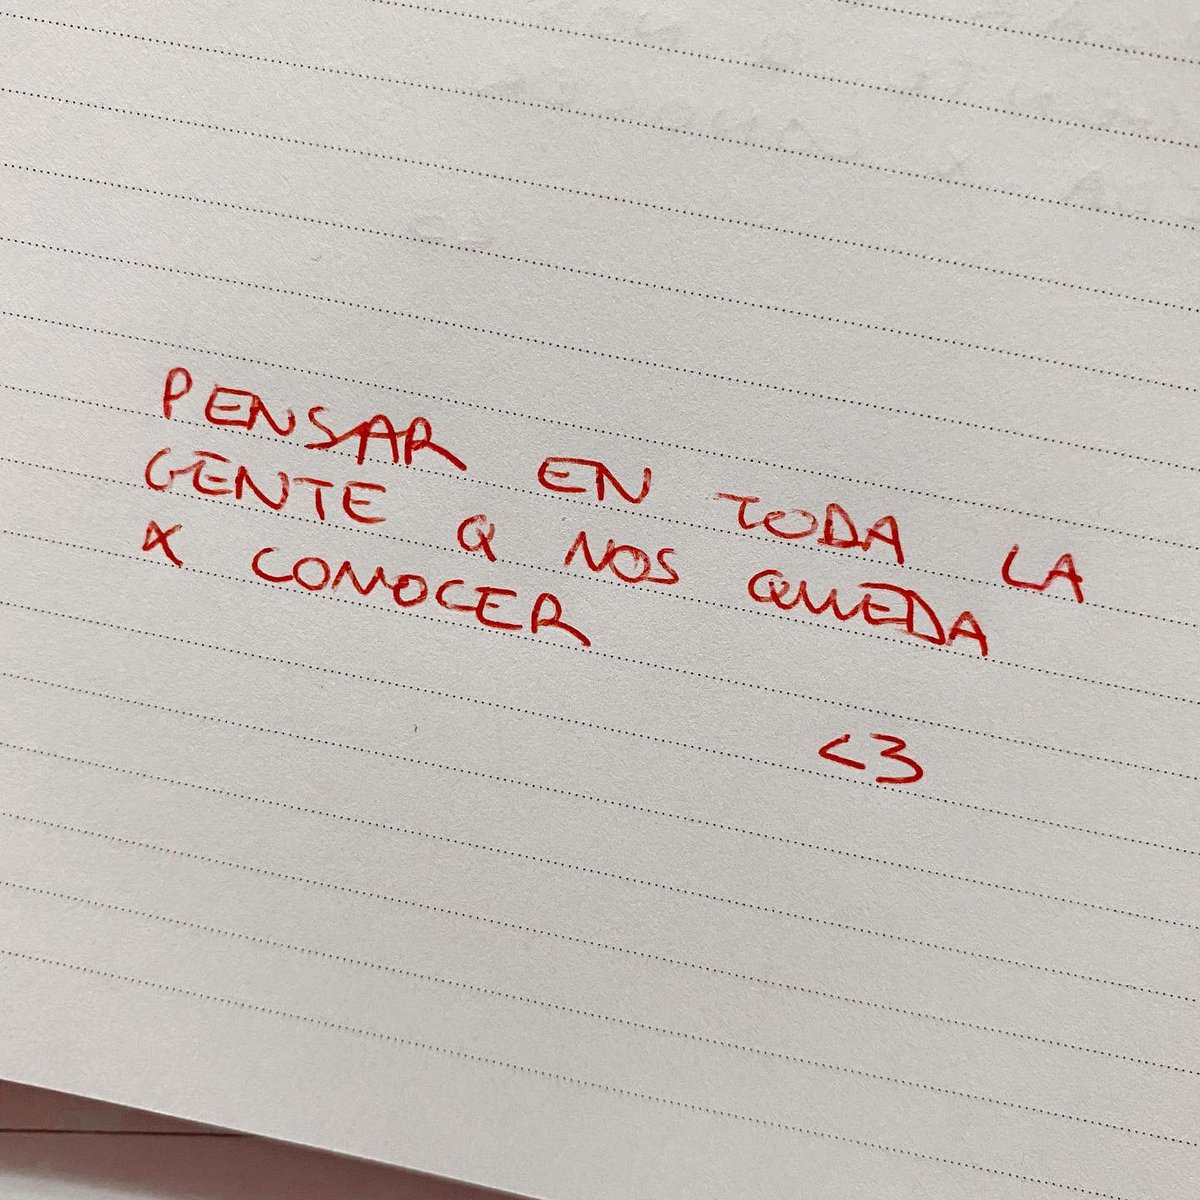 PENSAR EN TODA LA
GENTE Q NOS QUEDA
X CONOCER
<3